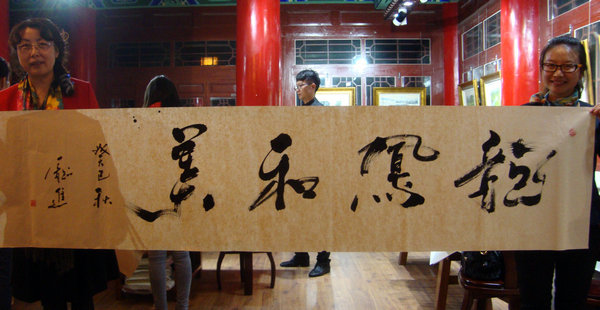 龍鳳和美
癸巳秋
進